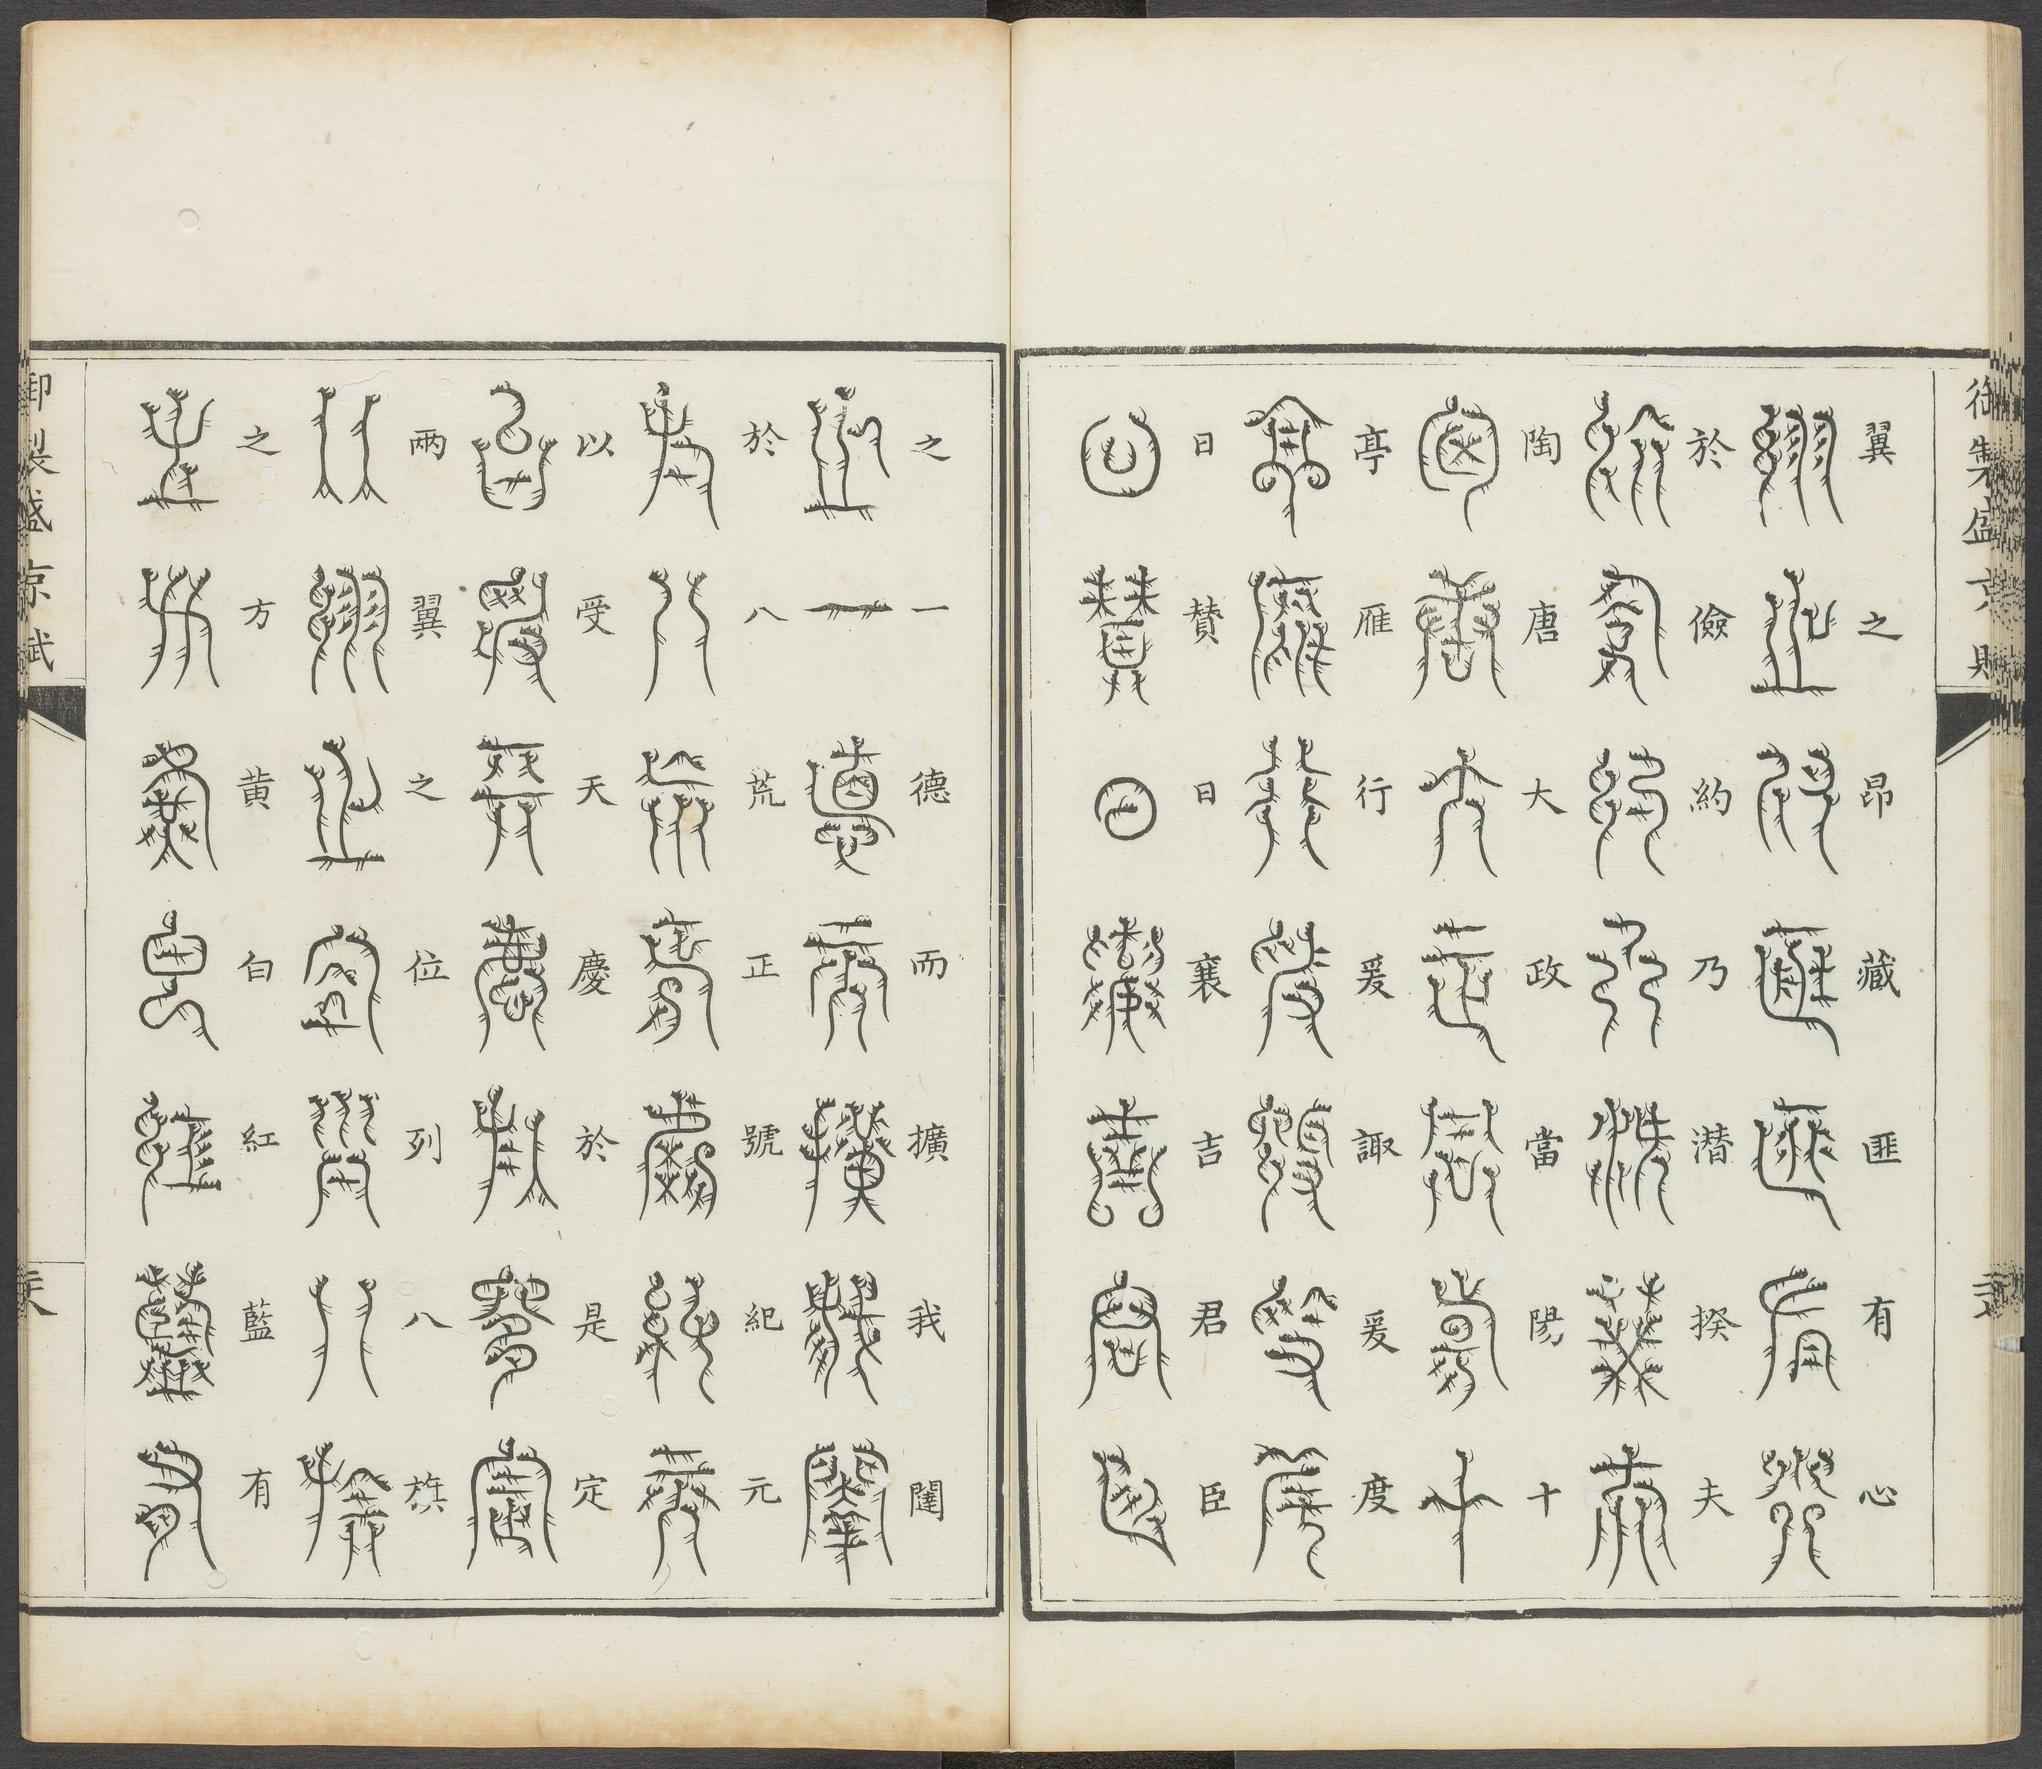 御製盛京賦
翼之昂藏匪有心
於儉約乃潛揆夫
陶唐大政當陽十
亭雁行爰諏爰度
曰贊曰襄吉君臣
之一德而擴我闥
於八荒正號紀元
以受天慶於是定
兩翼之位列八旗
之方黃白紅藍有
御製盛京賦